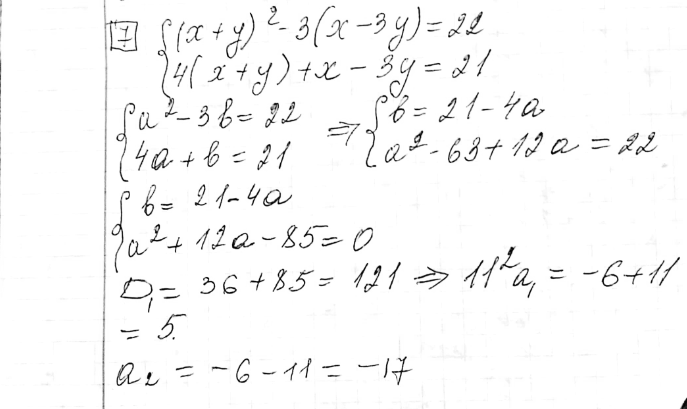 7 { (x + y)² - 3(x - 3y) = 22
{ 4(x + y) + x - 3y = 21
{ a² - 3b = 22 ⇒ { b = 21 - 4a
{ 4a + b = 21 { a² - 63 + 12a = 22
{ b = 21 - 4a
{ a² + 12a - 85 = 0
D₁ = 36 + 85 = 121 ⇒ 11² a₁ = -6 + 11
= 5.
a₂ = -6 - 11 = -17